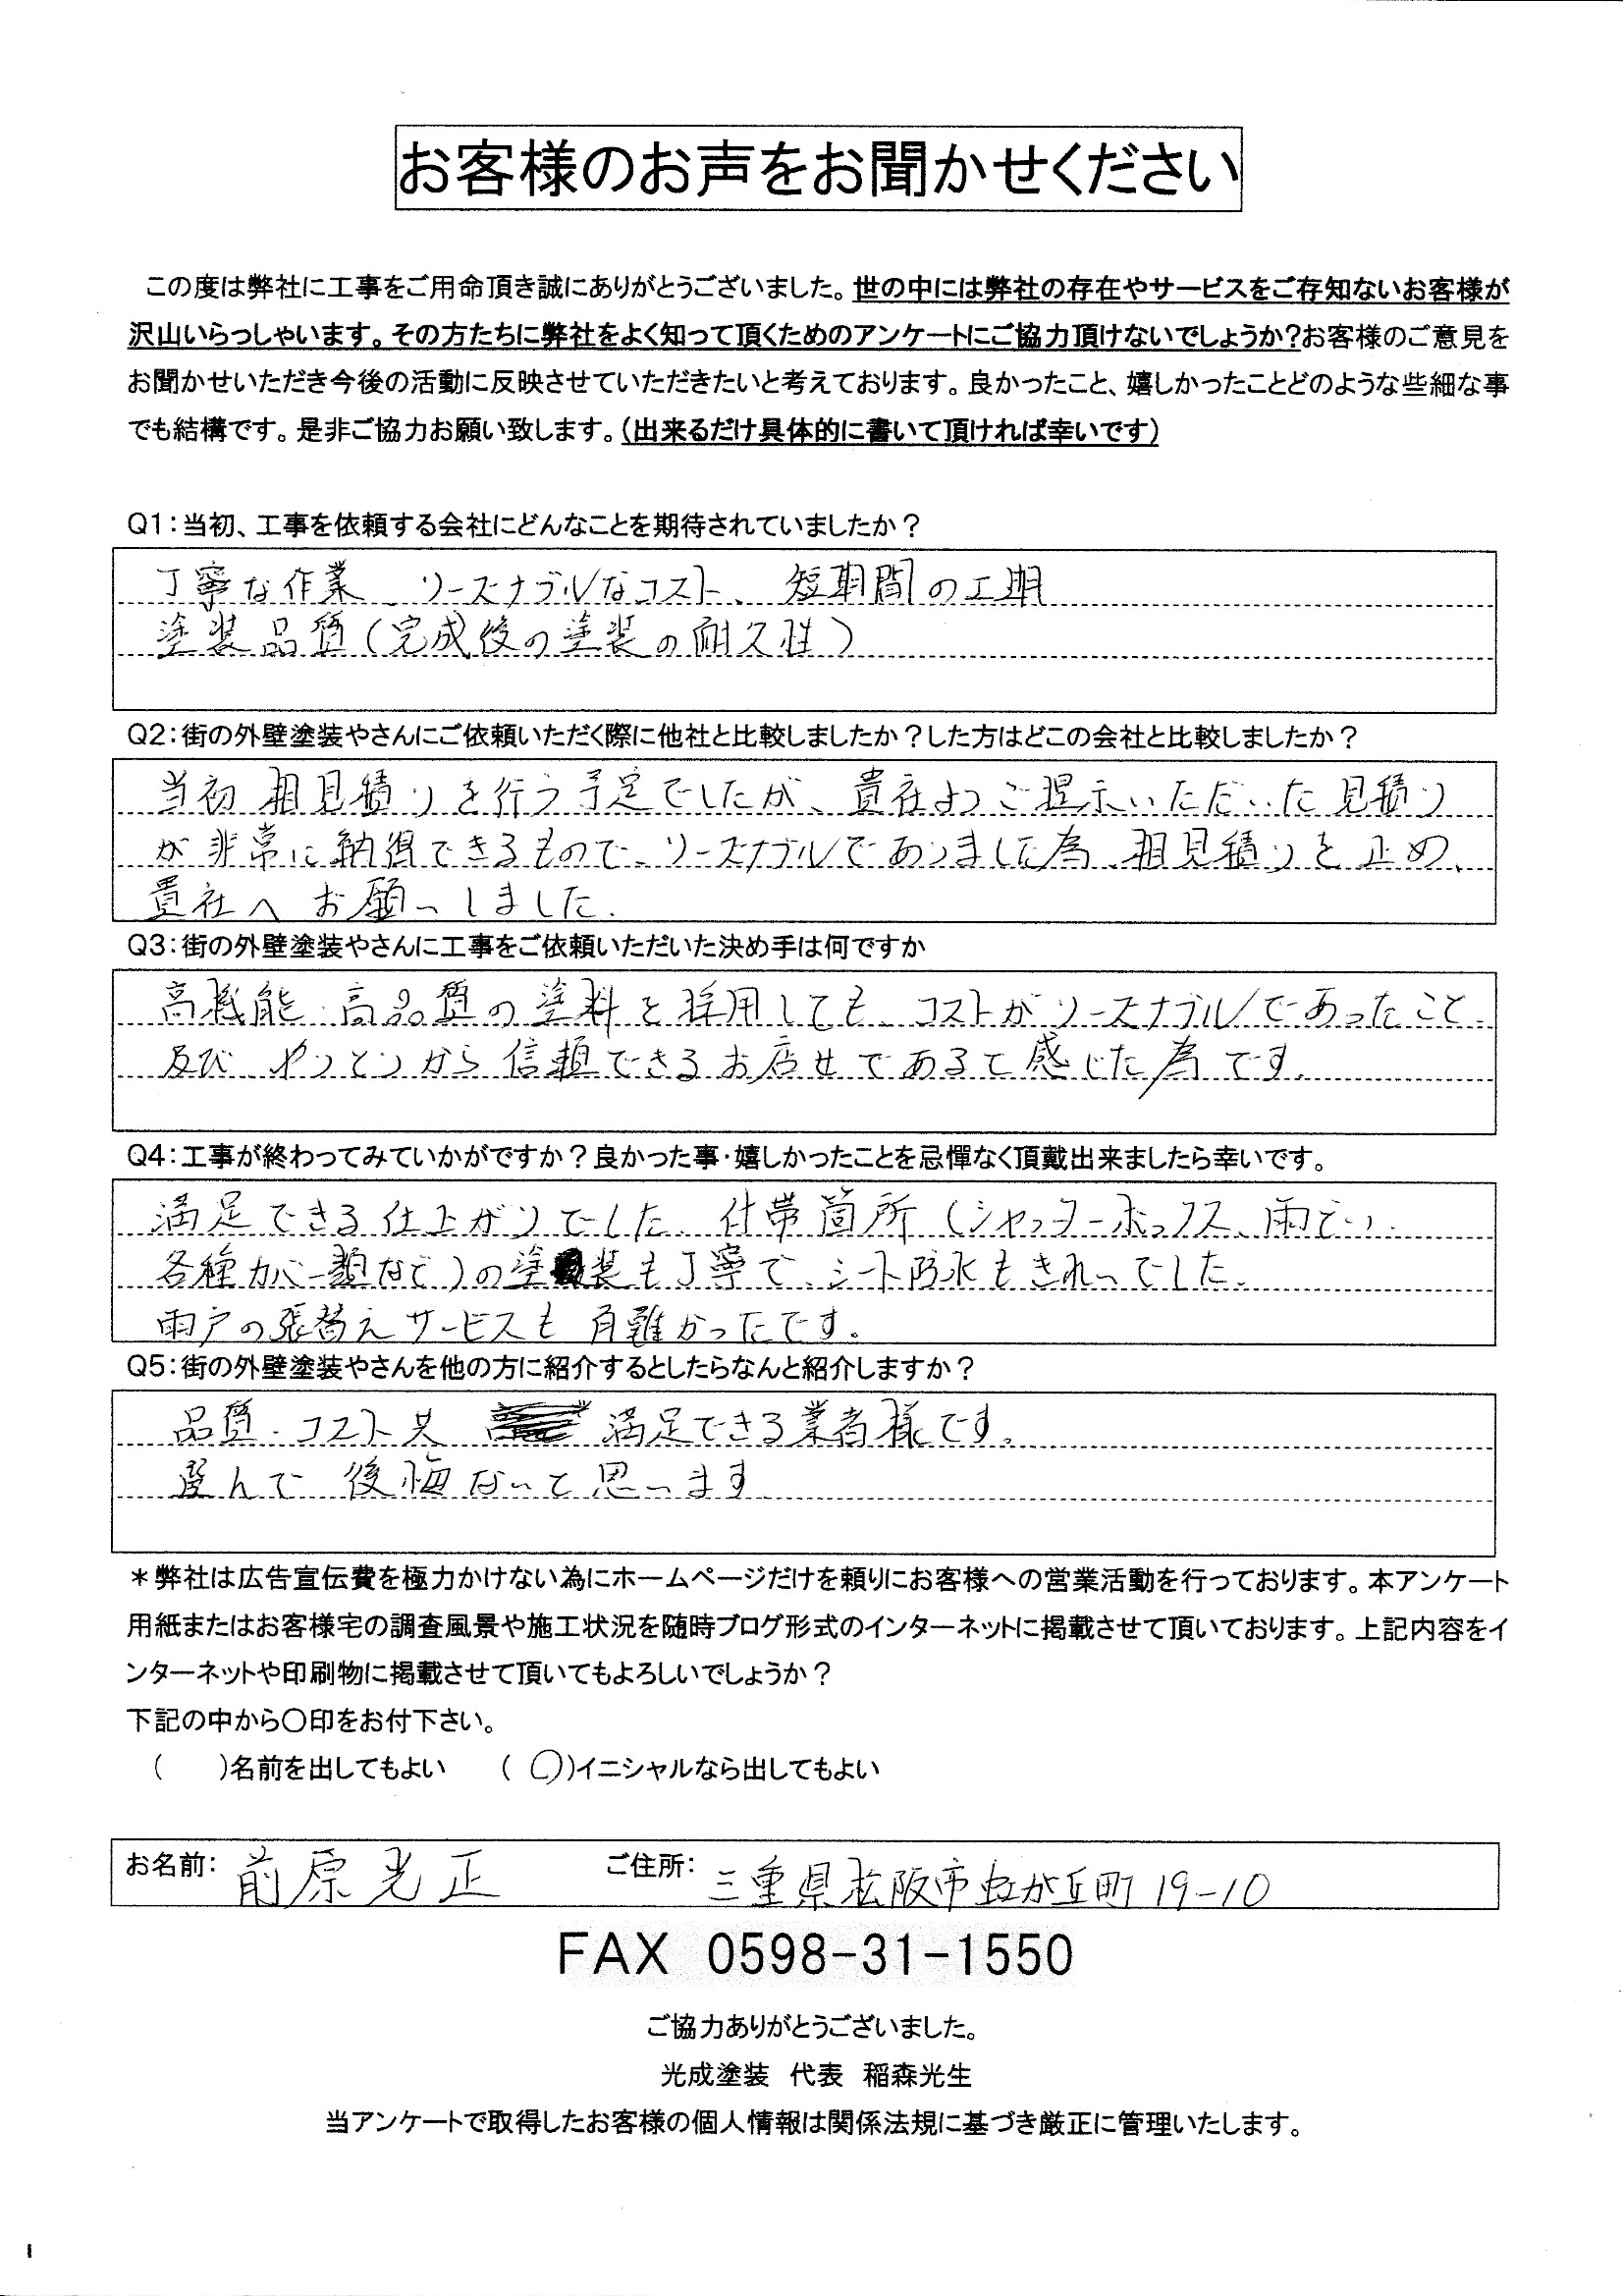 お客様のお声をお聞かせください
この度は弊社に工事をご用命頂き誠にありがとうございました。世の中には弊社の存在やサービスをご存知ないお客様が
沢山いらっしゃいます。その方たちに弊社をよく知って頂くためのアンケートにご協力頂けないでしょうか?お客様のご意見を
お聞かせいただき今後の活動に反映させていただきたいと考えております。良かったこと、嬉しかったことどのような些細な事
でも結構です。是非ご協力お願い致します。(出来るだけ具体的に書いて頂ければ幸いです)
Q1:当初、工事を依頼する会社にどんなことを期待されていましたか?
丁寧な作業、リーズナブルなコスト、短期間の工期
塗装品質(完成後の塗装の耐久性)
Q2:街の外壁塗装やさんにご依頼いただく際に他社と比較しましたか?した方はどこの会社と比較しましたか?
当初 相見積りを行う予定でしたが、貴社よりご提示いただいた見積り
が非常に納得できるもので、リーズナブルでありました為、相見積りを止め、
貴社へお願いしました.
Q3:街の外壁塗装やさんに工事をご依頼いただいた決め手は何ですか
高機能・高品質の塗料を採用しても、コストがリーズナブルであったこと、
及び やりとりから信頼できるお店せであると感じた為です.
Q4:工事が終わってみていかがですか?良かった事・嬉しかったことを忌憚なく頂戴出来ましたら幸いです。
満足できる仕上がりでした. 付帯箇所(シャッターボックス、雨とい、
各種カバー類など)の塗装も丁寧で、シート防水もきれいでした.
雨戸の張替えサービスも有難かったです。
Q5:街の外壁塗装やさんを他の方に紹介するとしたらなんと紹介しますか?
品質・コスト共 満足できる業者様です。
選んで 後悔ないと思います
*弊社は広告宣伝費を極力かけない為にホームページだけを頼りにお客様への営業活動を行っております。本アンケート
用紙またはお客様宅の調査風景や施工状況を随時ブログ形式のインターネットに掲載させて頂いております。上記内容をイ
ンターネットや印刷物に掲載させて頂いてもよろしいでしょうか?
下記の中から〇印をお付下さい。
( )名前を出してもよい (〇)イニシャルなら出してもよい
お名前: 前原光正 ご住所: 三重県松阪市虹が丘町19-10
FAX 0598-31-1550
ご協力ありがとうございました。
光成塗装 代表 稲森光生
当アンケートで取得したお客様の個人情報は関係法規に基づき厳正に管理いたします。